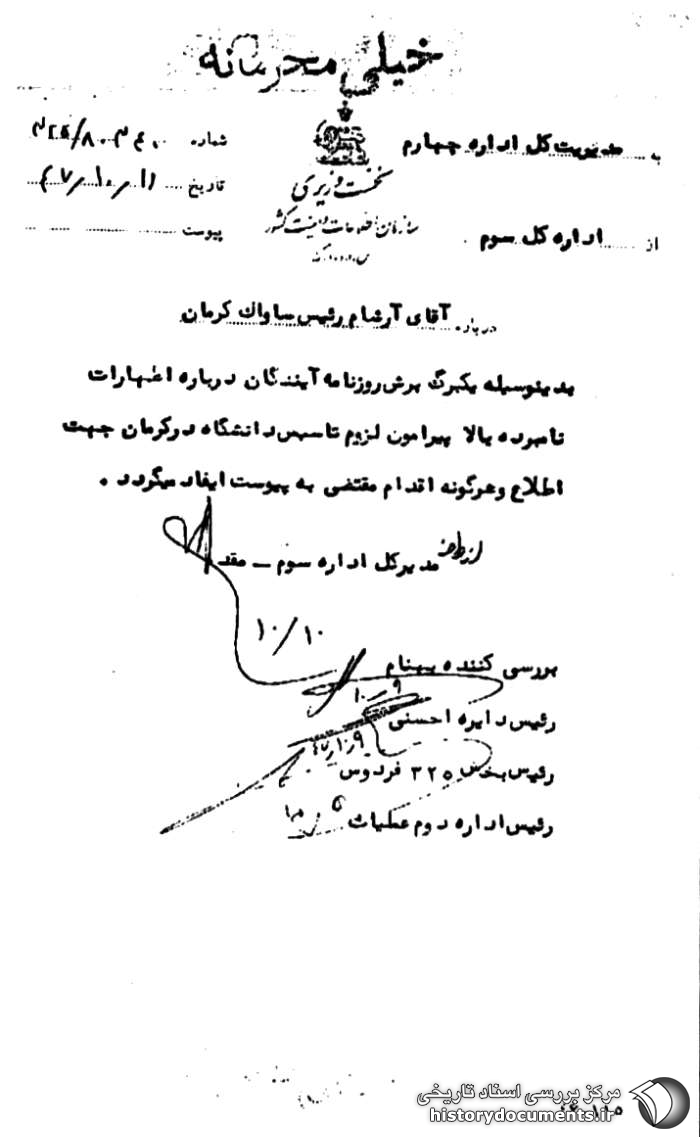 خیلی محرمانه
به مدیریت کل اداره چهارم
از اداره کل سوم
نخست وزیری
سازمان اطلاعات و امنیت کشور
س.ا.و.ا.ک
شماره
تاریخ
پیوست
درباره آقای آرشام رئیس ساواك کرمان
بدینوسیله یکبرگ برش روزنامه آیندگان درباره اظهارات
نامبرده بالا پیرامون لزوم تاسیس دانشگاه در کرمان جهت
اطلاع و هرگونه اقدام مقتضی به پیوست ایفاد میگردد .
مدیرکل اداره سوم – مقدم
۱۰/۱۰
بررسی کننده بهنام
۹ـ۱۰
رئیس دایره احسنی
رئیس بخش ۳۲۵ فردوس
رئیس اداره دوم عملیات
مرکز بررسی اسناد تاریخی
historydocuments.ir